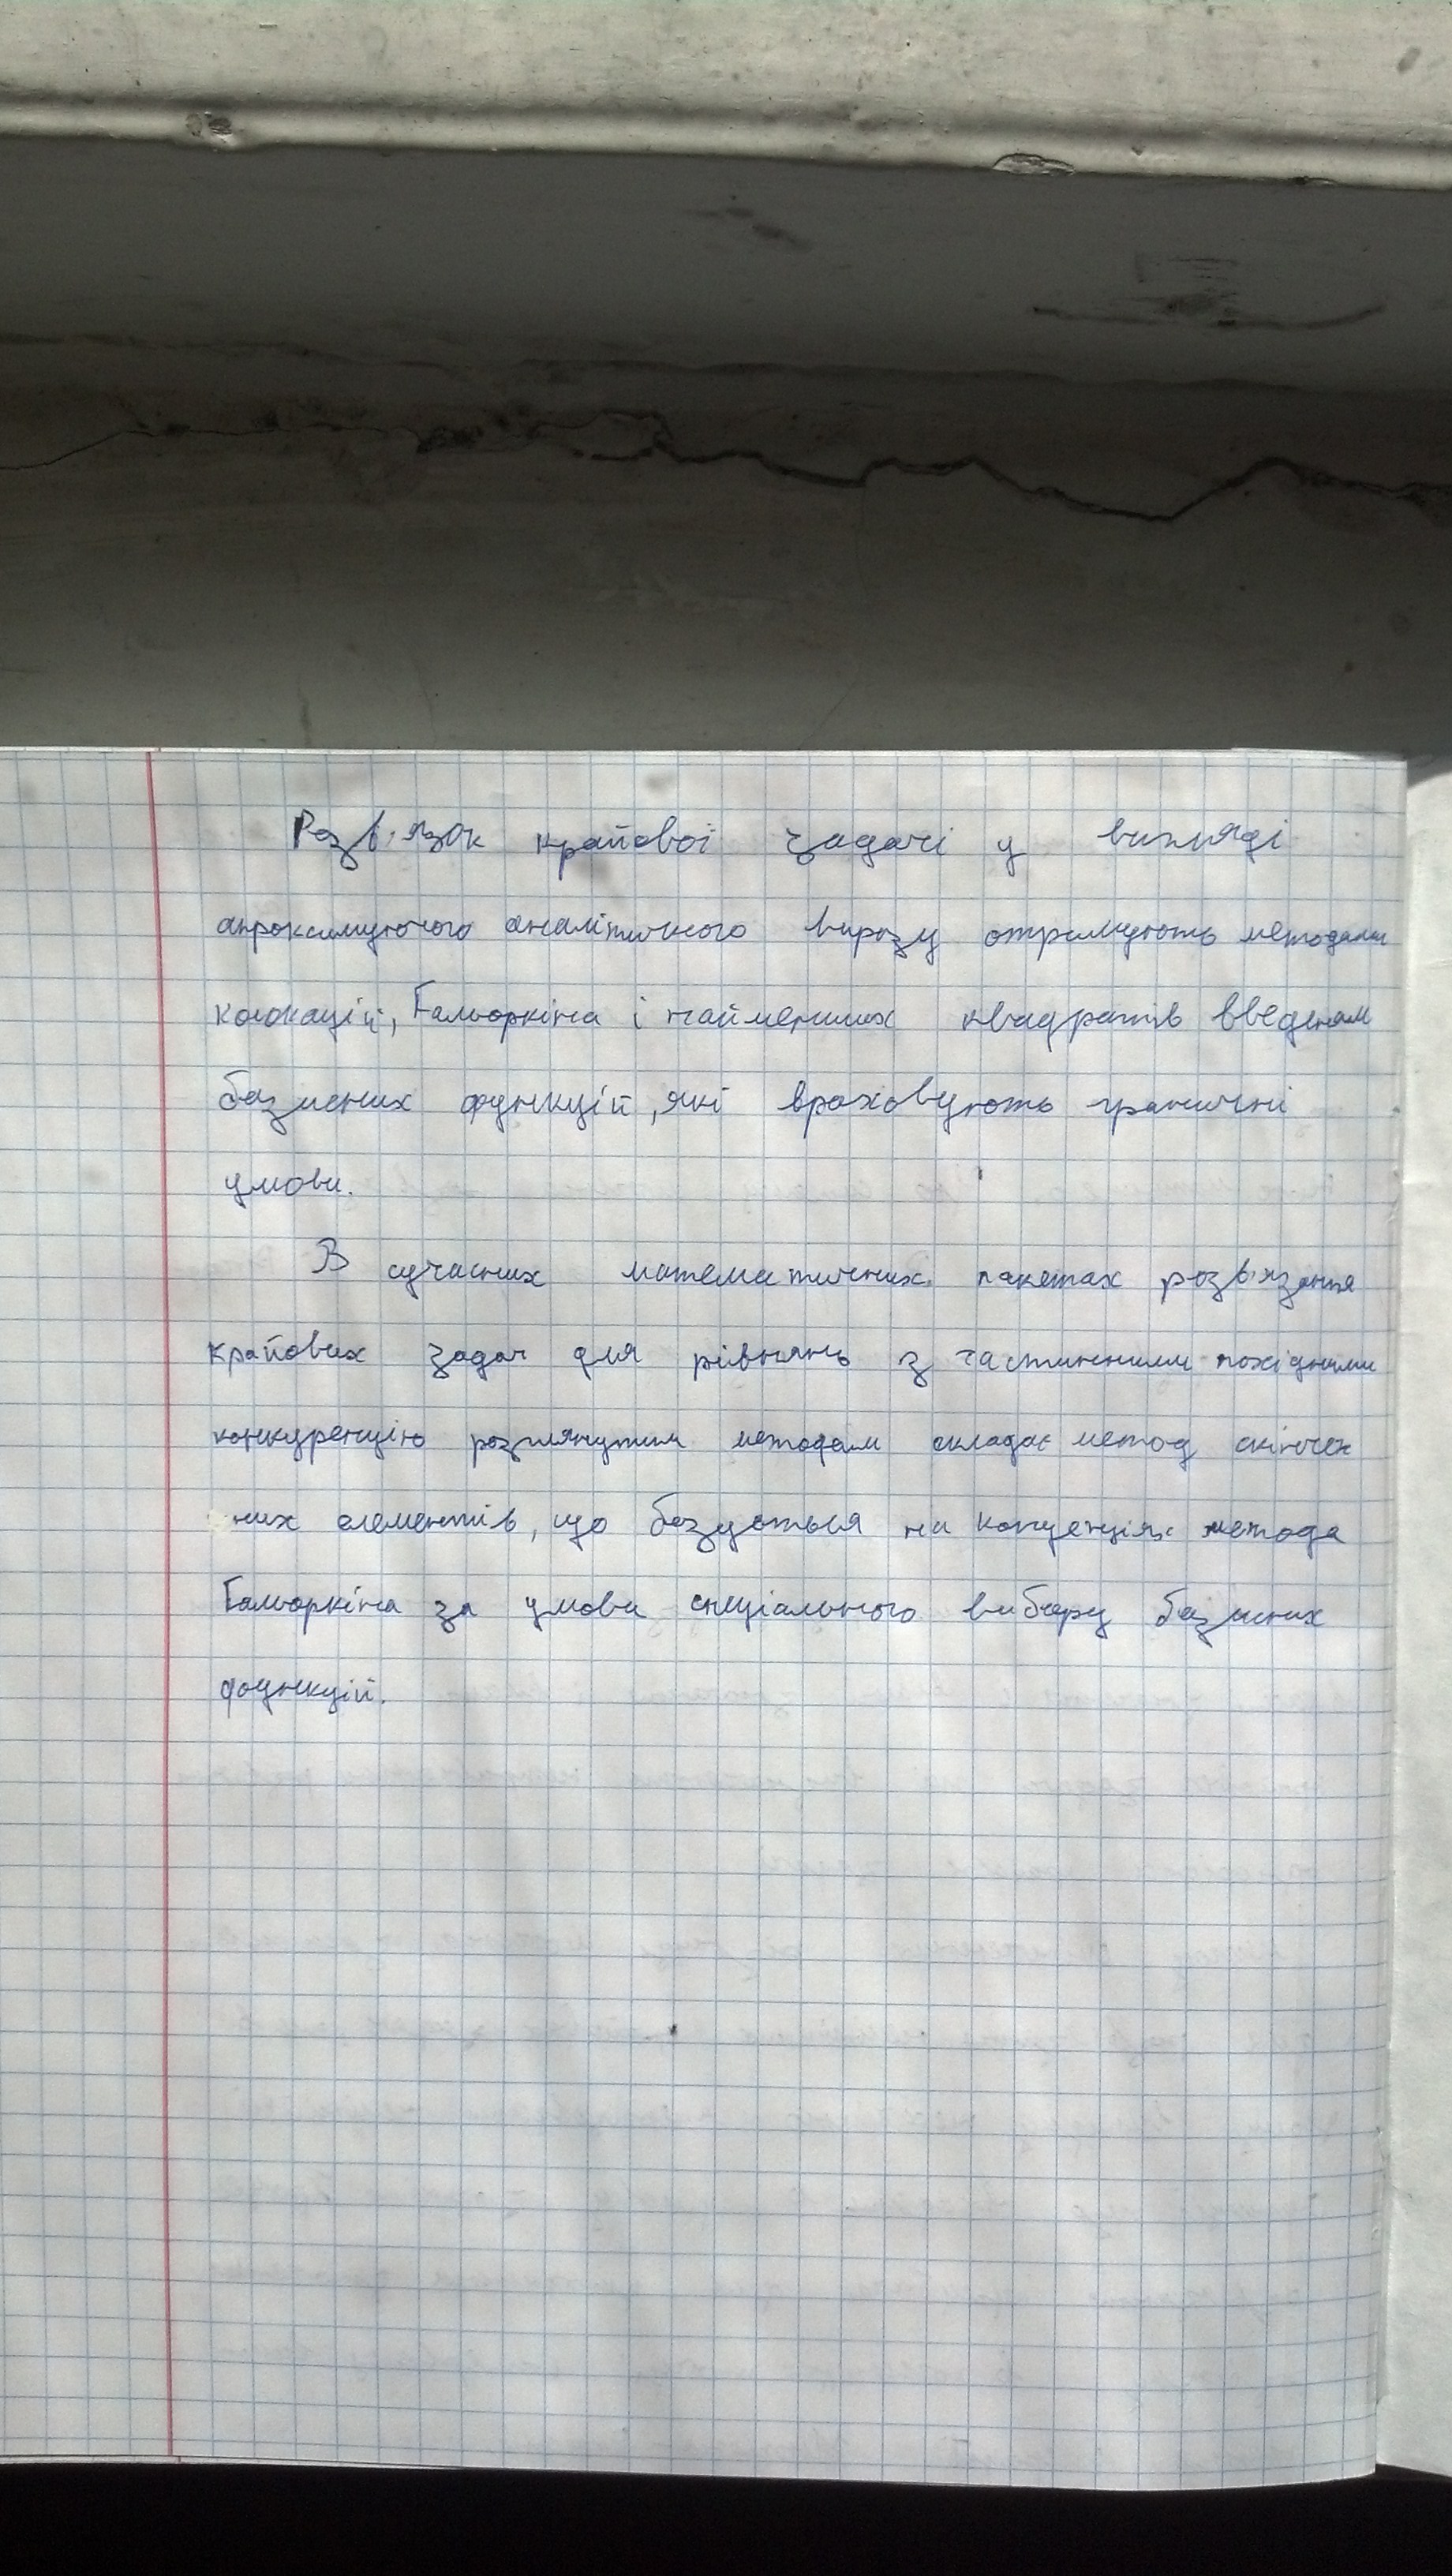 Розв'язок крайової задачі у вигляді
апроксимуючого аналітичного виразу отримують методами
колокацій, Гальоркіна і найменших квадратів введеням
базисних функцій, які враховують граничні
умови.
В сучасних математичних пакетах розв'язання
крайових задач для рівнянь з частинними похідними
конкуренцію розглянутим методам складає метод скінчен
них елементів, що базується на концепціях метода
Гальоркіна за умови спеціального вибору базисних
функцій.